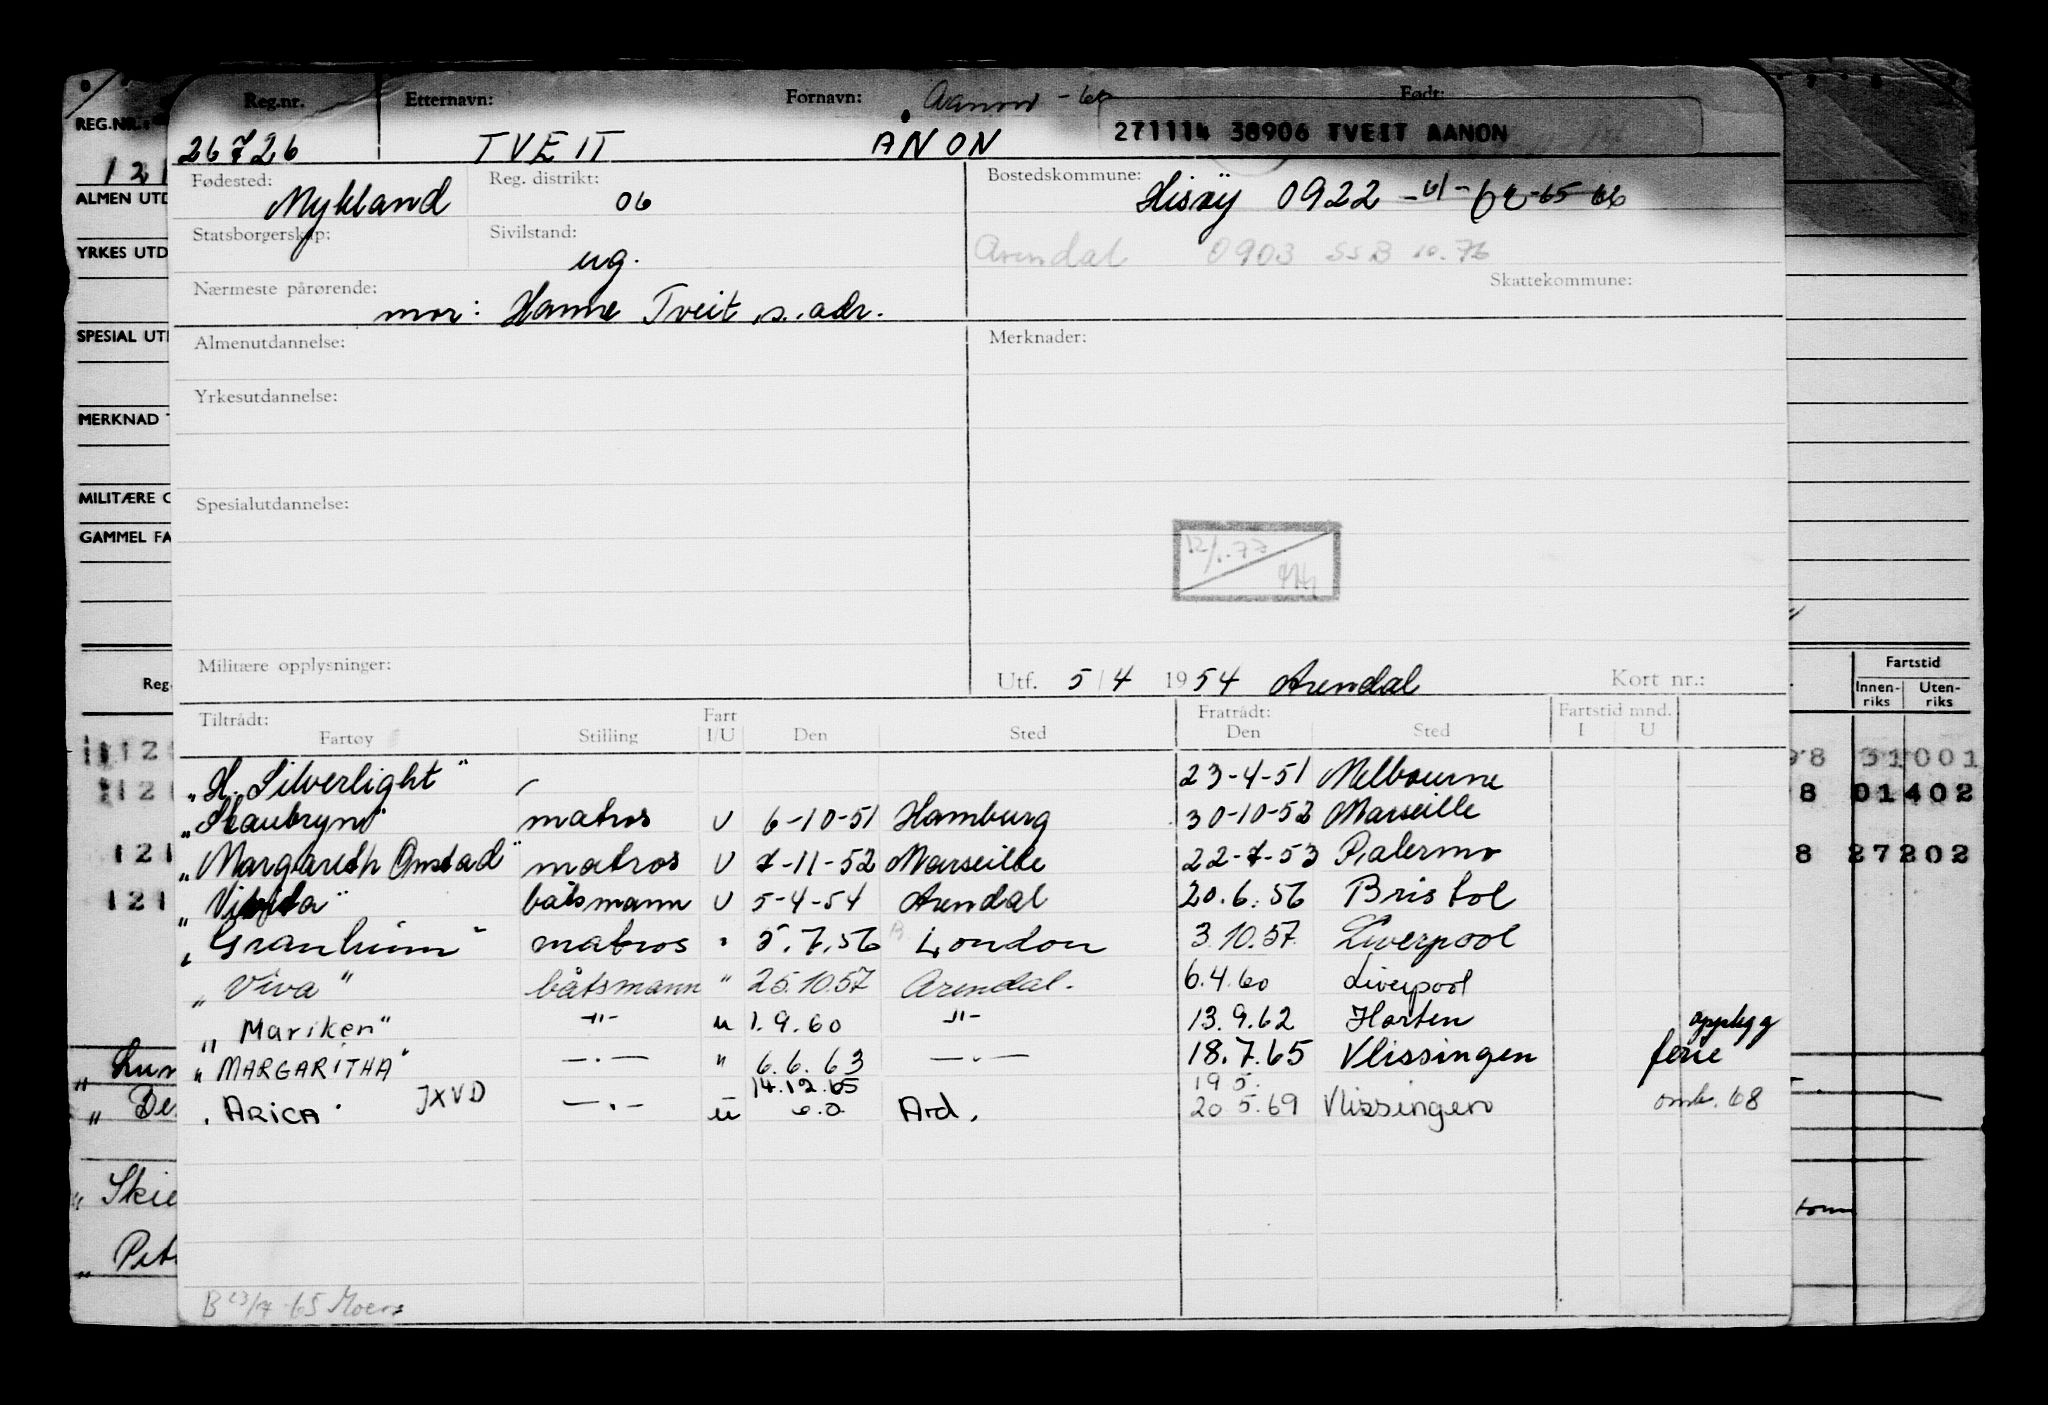 Reg.nr. Etternavn: Fornavn: Aanon Født:
26726 TVEIT ÅNON 271114 38906 TVEIT AANON
Fødested: Mykland Reg. distrikt: 06 Bostedskommune: Hisøy 0922 -61-62-65 66
Statsborgerskap: Sivilstand: ug. Arendal 0903 SSB 10.76
Skattekommune:
Nærmeste pårørende: mor: Hanne Tveit s. adr.
Almenutdannelse: Merknader:
Yrkesutdannelse:
Spesialutdannelse:
Militære opplysninger: Utf. 5/4 1954 Arendal Kort nr.:
Tiltrådt: Fart Fratrådt: Fartstid mnd.
Fartøy Stilling I/U Den Sted Den Sted I U
"H. Silverlight" 23-4-51 Melbourne
"Skaubryn" matros U 6-10-51 Hamburg 30-10-52 Marseille
"Margareth Onstad" matros U 7-11-52 Marseille 22-7-53 Palermo
båtsmann U 5-4-54 Arendal 20.6.56 Bristol
"Granheim" matros " 5.7.56 London 3.10.57 Liverpool
"Viva" båtsmann " 25.10.57 Arendal. 6.4.60 Liverpool
"Mariken" -"- u 1.9.60 -"- 13.9.62 Horten opplegg
"MARGARITHA" —.— " 6.6.63 —.— 18.7.65 Vlissingen ferie
14.12.65 19 5.
"ARICA" JXVD —.— u Ard. 20 5.69 Vlissingen omk. 68
B 23/7-65
REG.NR.:
121
ALMEN UTD
YRKES UTD
SPESIAL UTD
MERKNAD
MILITÆRE O
GAMMEL FA
Reg
121
121
121
121
Skie
Pet
Fartstid
Innen-riks Uten-riks
98 31001
8 01402
8 27202